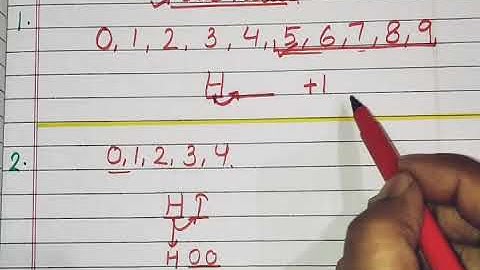 1.
0, 1, 2, 3, 4, 5, 6, 7, 8, 9
H +1
2. 0, 1, 2, 3, 4.
H T
H 0 0